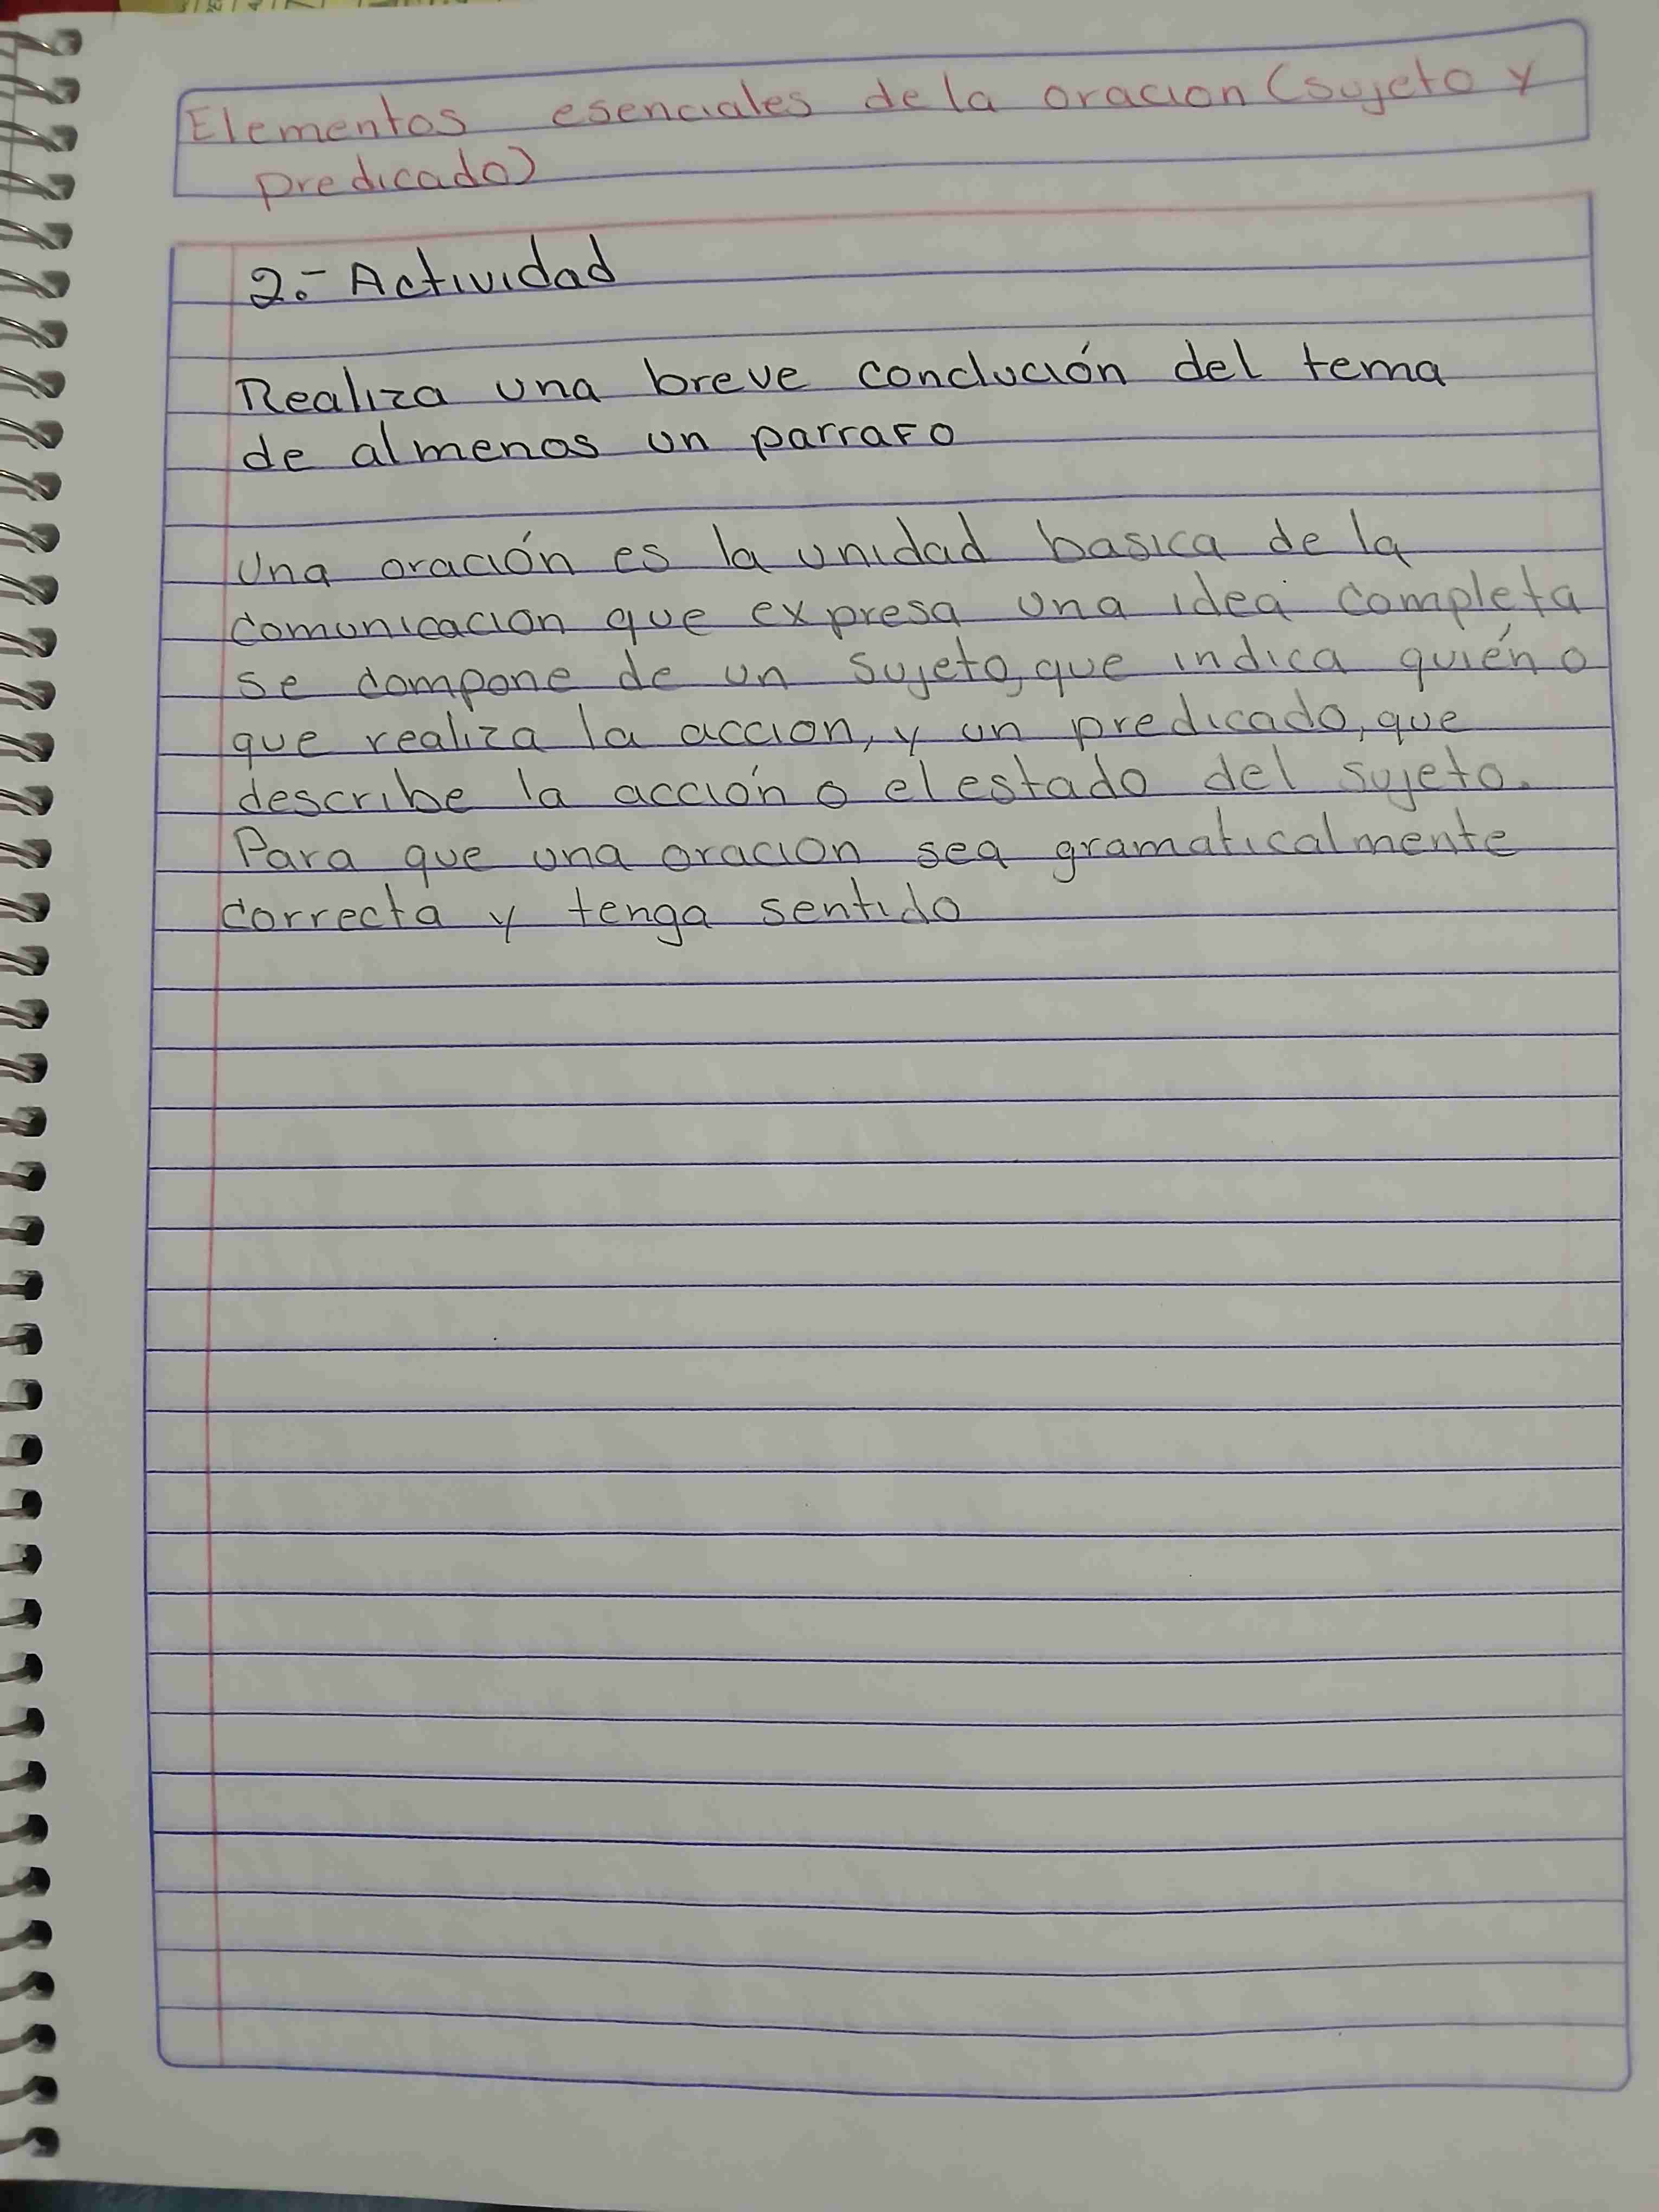 Elementos esenciales de la oracion (sujeto y
predicado)
2.- Actividad
Realiza una breve conclución del tema
de almenos un parrafo
Una oración es la unidad basica de la
comunicacion que expresa una idea completa
se compone de un sujeto, que indica quién o
que realiza la accion, y un predicado, que
describe la acción o el estado del sujeto.
Para que una oracion sea gramaticalmente
correcta y tenga sentido